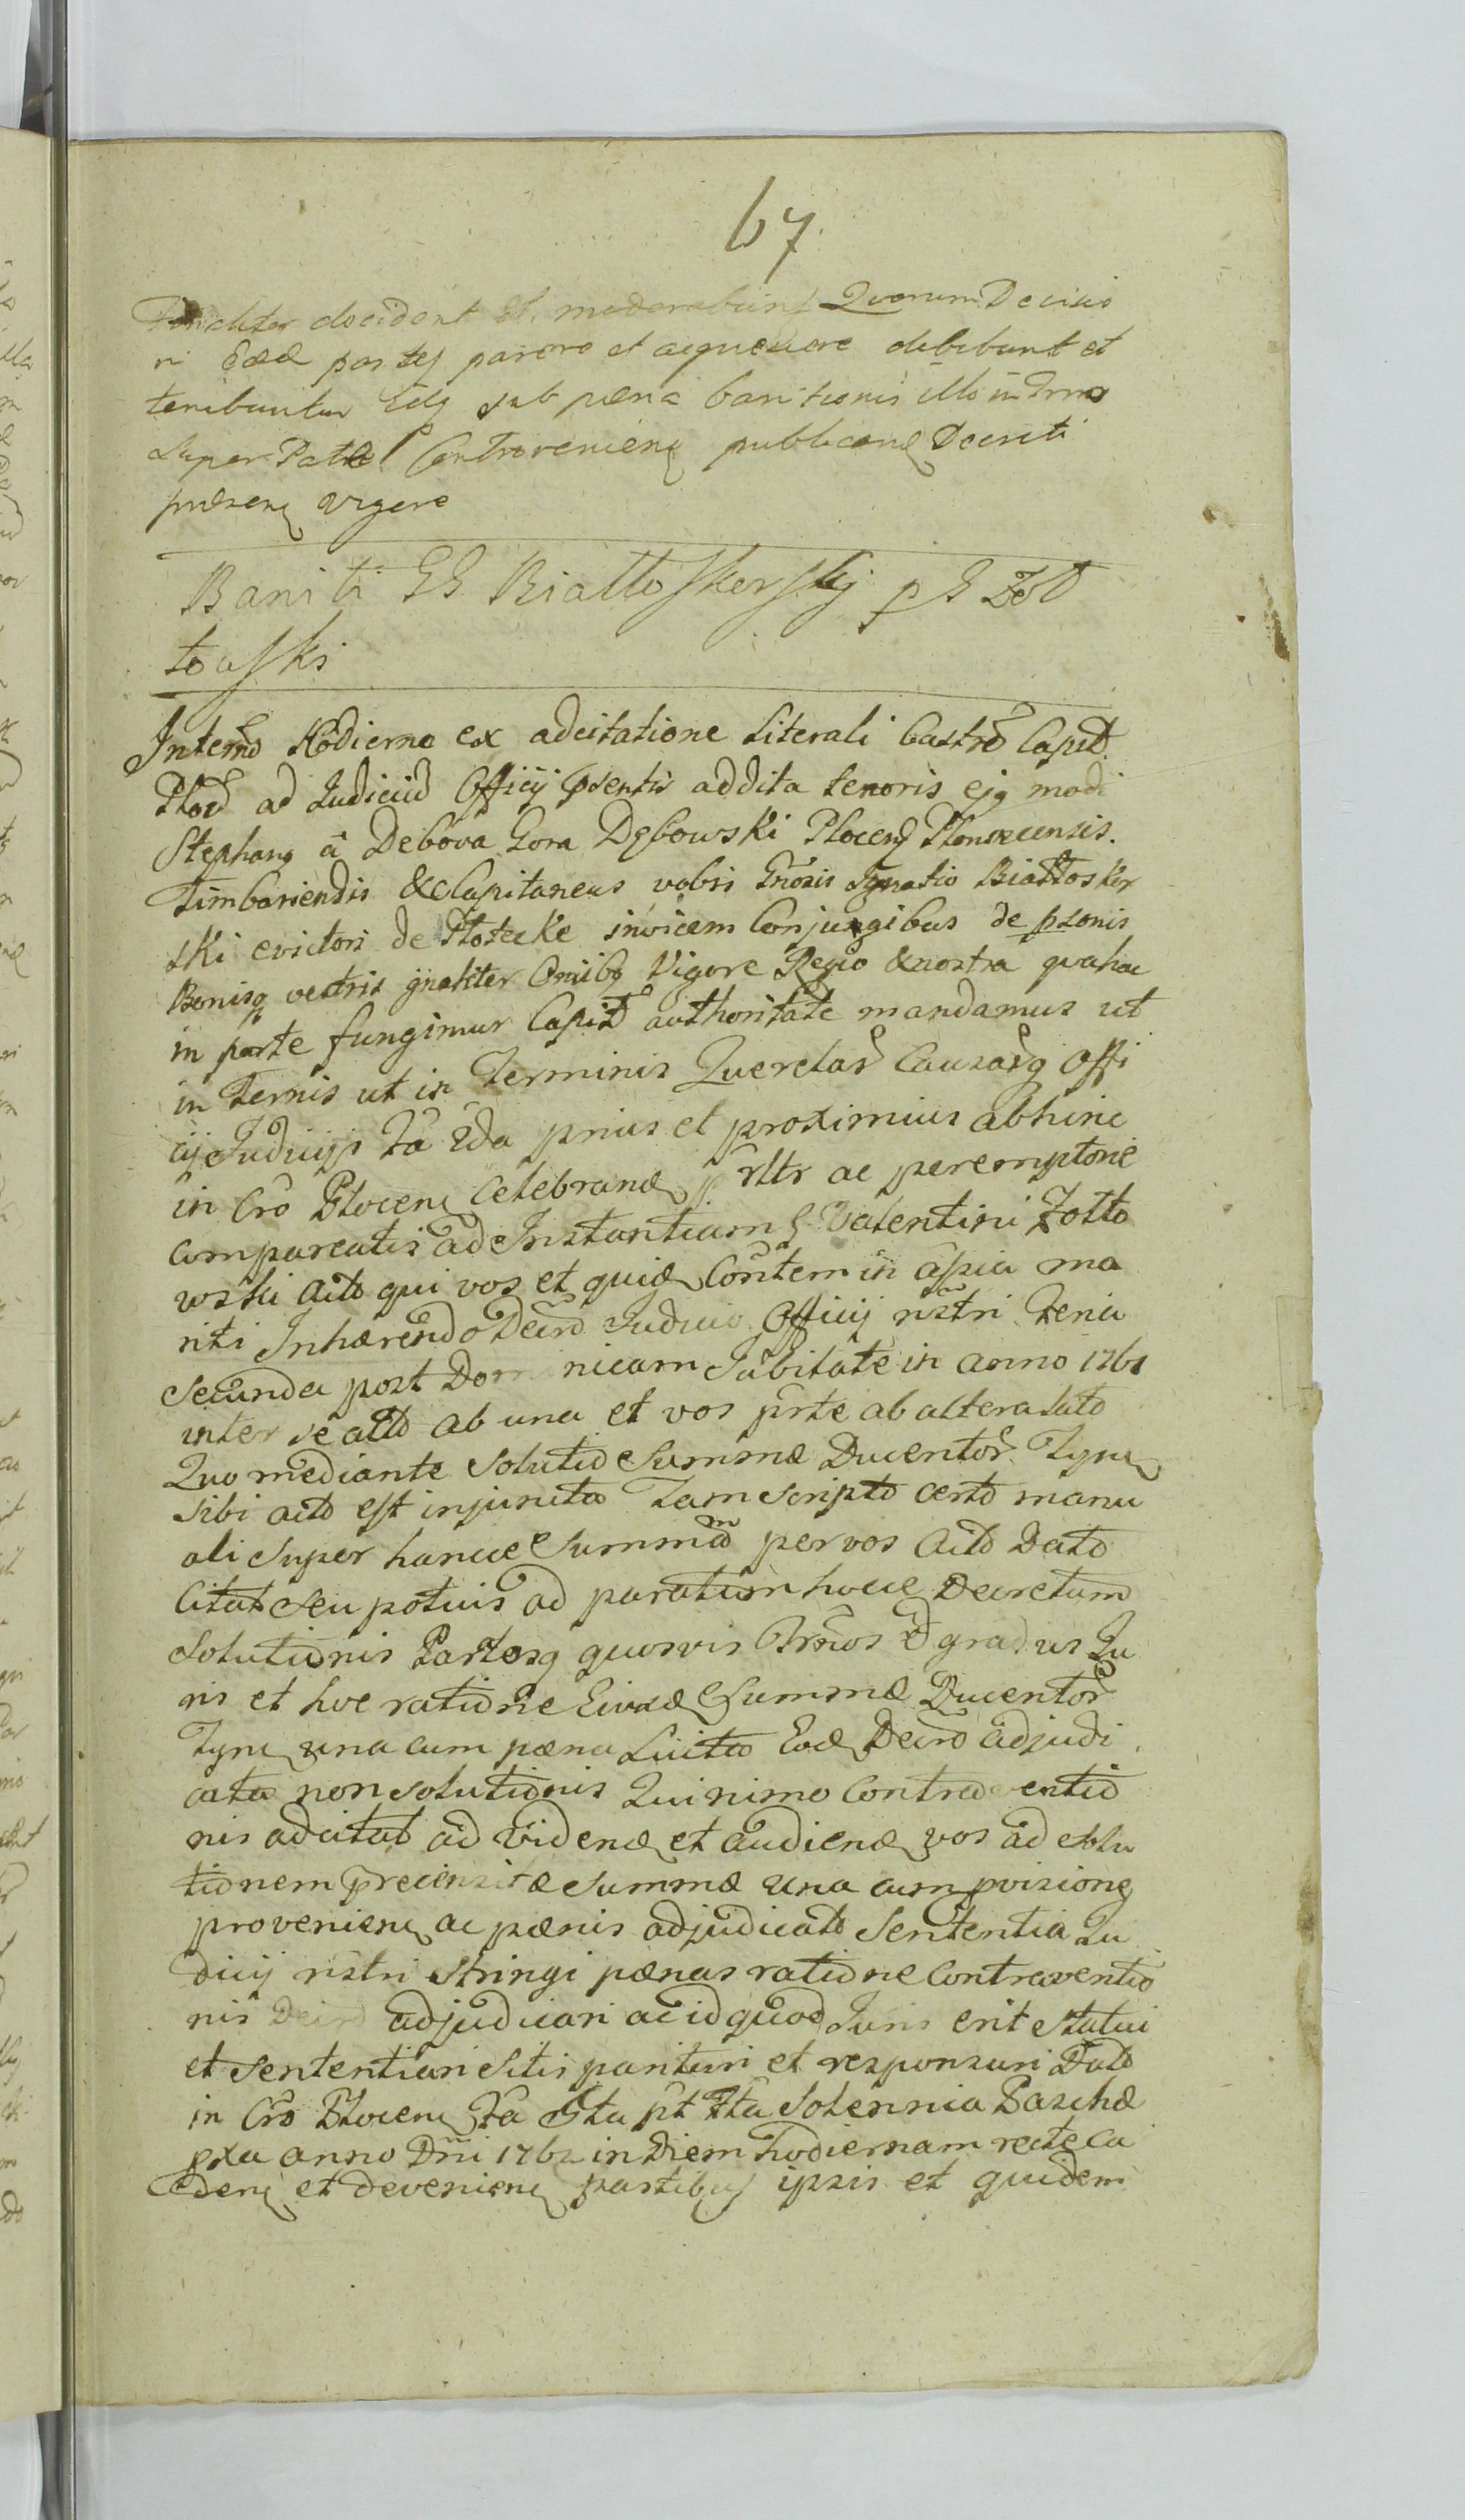 67.
decident et moderabunt Quorum Decisio
ni Eaed partes parere et acquiescere debebunt et
tenebuntur sub pæna banitionis illo in Trno
super Patte Contravenienę publicanę Decreti
præsenę vigore
Baniti GG Biallo Skorskÿ p G Zot
towski
In termo Hodierno ex adcitatione Literali Castrō Capit
Ploc ad Judiciū Officij psentis addita tenoris ejq modi
Stephanq â Debova Gora Dębowski Plocenę Plonscensis.
Timbariensis & Capitaneus vobis Gnosis Ignatio Biattosker
ski evictori de Płotecke invicem Conjungibus de psonis
Bonisq vestris gnaliter Omibq Vigore Regio & nostra qua hac
in parte fungimur Capit authoritate mandamus ut
in Termis ut in Terminis Querelar Causarq Offi
cij Judicijs Fa 2da prius et proximius abhinc
in Cro Plocenę celebrandę p rltr ac peremptorie
compareatis ad Instantiam G Valentini Zotto
wski acto qui vos et quidę Contem in aspia ma
riti Inhærendo Decro Judicio Officij nstri Feria
Secunda post Dominicam Jubilate in anno 1761
inter se acto ab una et vos prte ab altera lato
Quo mediante Solutio Summæ Ducentor Tynę
sibi acto est injuncta Tam scripto certo manu
ali super hancce Summam per vos acto Dato
Citat seu potius ad paratum hocce Decretum
Solutionis Partesq quosvis Trnos & gradus Ju
ris et hoc ratione Eiusdę Summæ Ducentor
Tynę una cum pæna Luita Eodę Decro adjudi
cata non solutionis Quinimo Contraventio
nis adcitat ad Videndę et audiendę vos ad Solu
tionem precensitæ Summæ una cum pvisione
provenienę ac pænis adjudicato Sententia Ju
dicij nstri stringi pænas ratione Contraventio
nis Decro adjudicari ac id quod Juris erit statui
et sententiari Sitis parituri et responsuri Dato
in Cro Plocenę Fa 6ta pt fta Solennia Paschæ
pxa anno Dni 1762 in Diem hodiernam recte ca
denę et devenienę partibus ipsis et quidem